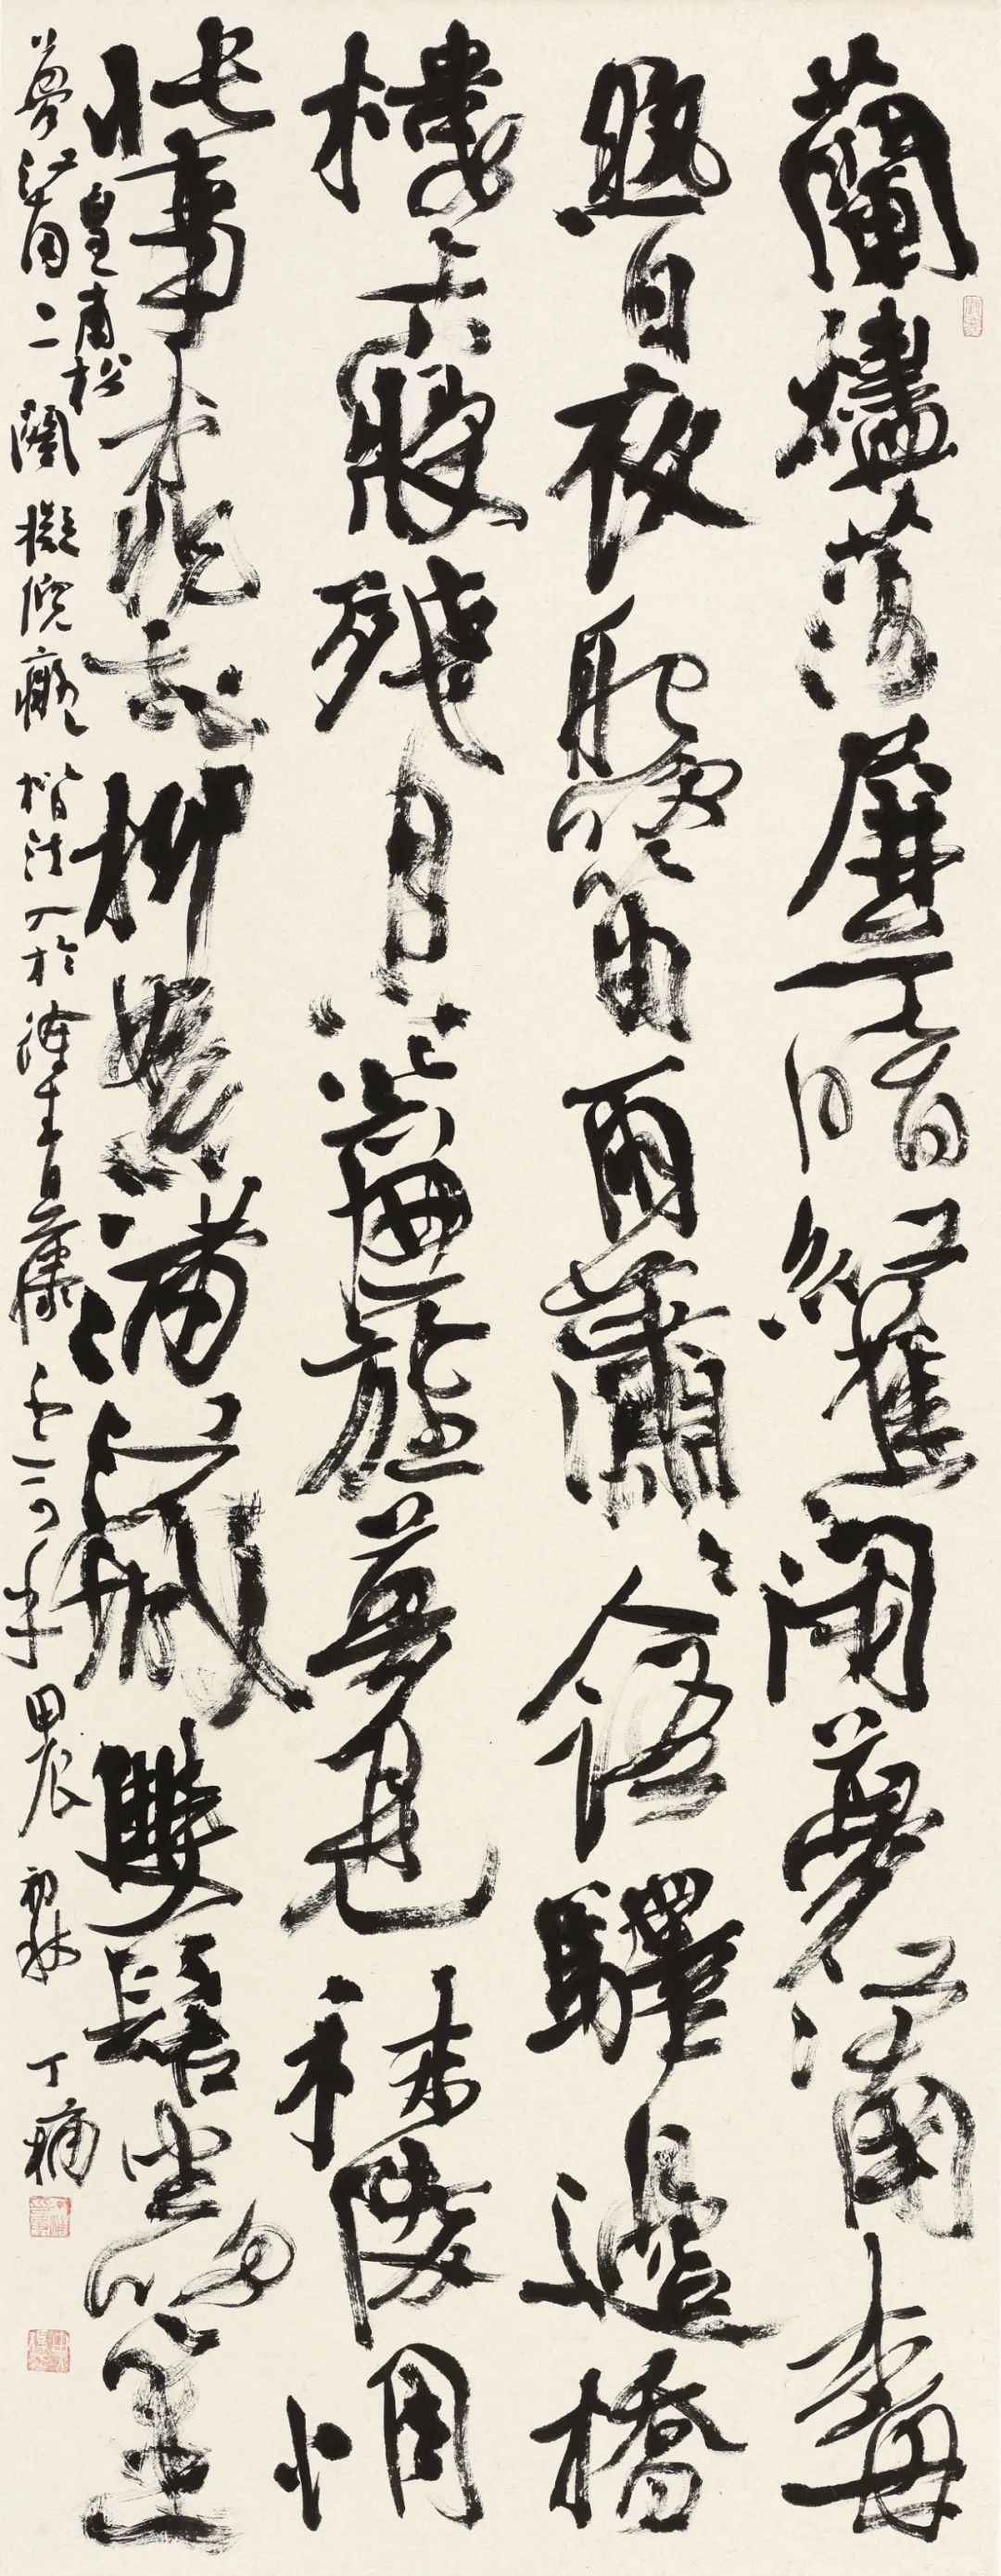 蘭燼落屏上暗紅蕉閑夢江南梅
熟日夜船吹笛雨瀟瀟人語驛邊橋
樓上寢殘月下簾旌夢見秣陵惆
悵事桃花柳絮滿江城雙髻坐吹笙
皇甫松
夢江南二闋擬倪楷法入於青藤甲辰初秋丁楠